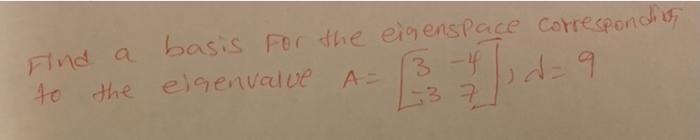 Find a basis For the eigenspace corresponding
to the eigenvalue A = [3 -4
-3 7], λ = 9